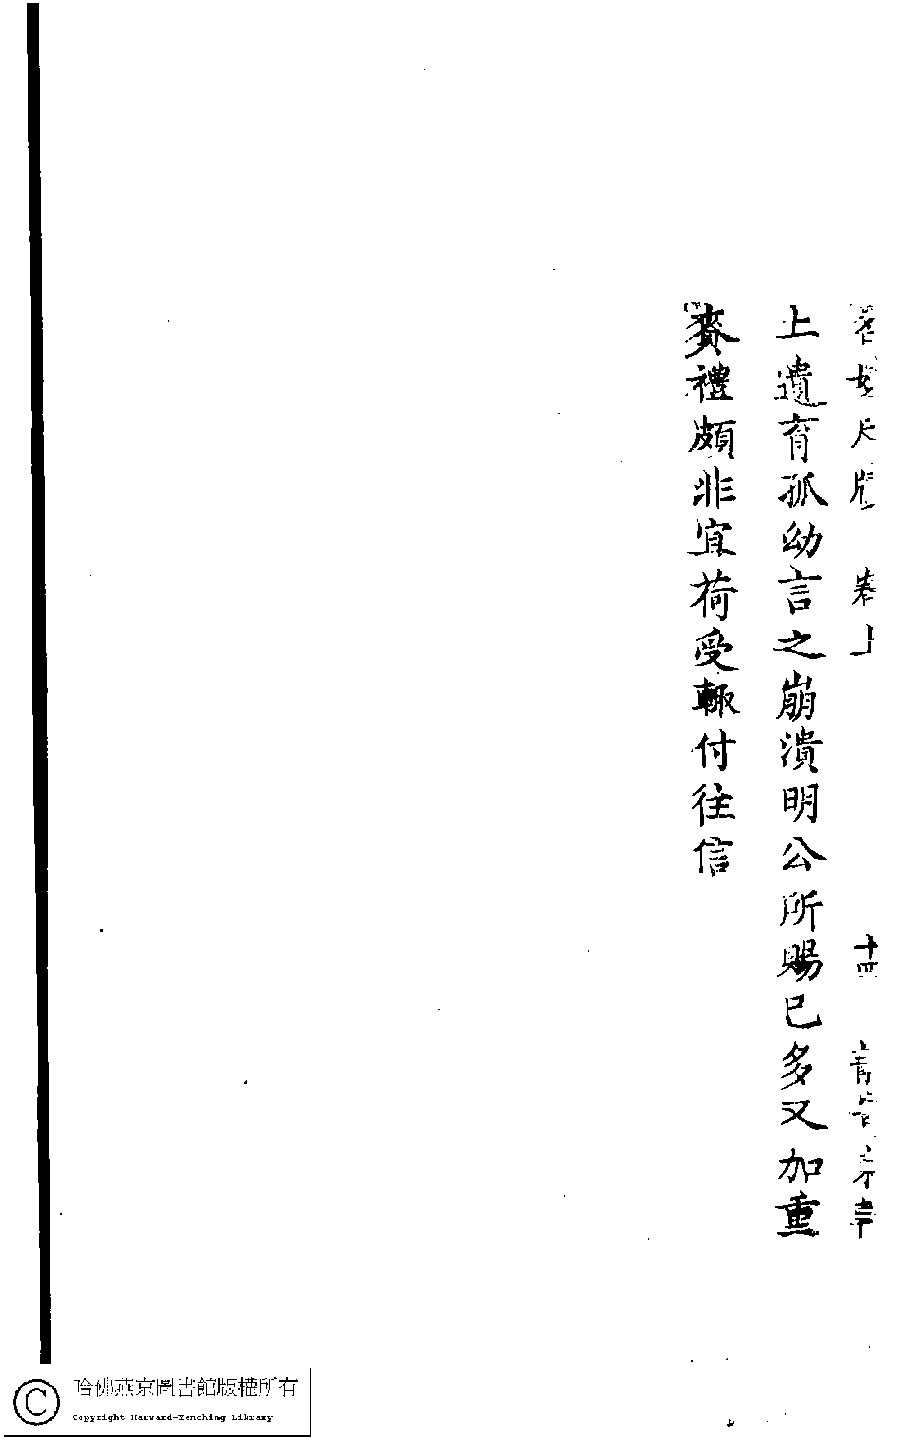 卷上 十四
上遺育孤幼言之崩潰明公所賜已多又加重
賚禮頗非宜荷受輙付往信
哈佛燕京圖書館版權所有
Copyright Harvard-Yenching Library